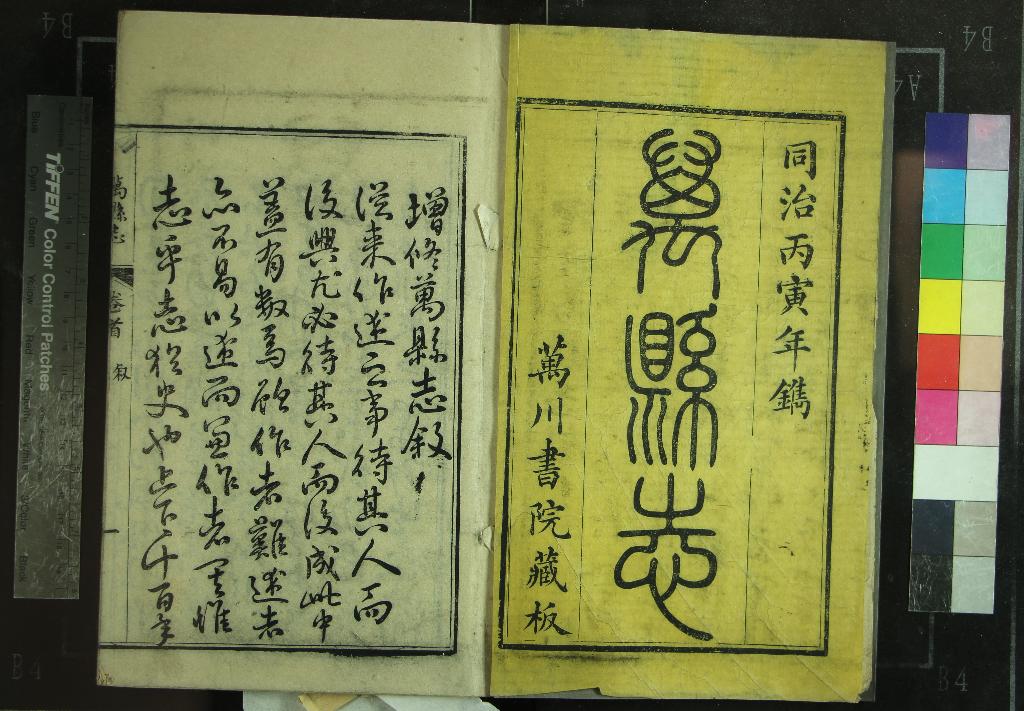 同治丙寅年鐫
萬縣志
萬川書院藏板
增修萬縣志叙
從来作述之事待其人而
後興尤必待其人而後成此中
蓋有数焉顧作者難述者
亦不易以述而兼作者更惟
志乎志猶史也上下千百年
萬縣志
卷首 叙
一
TIFFEN Color Control Patches
Blue
Cyan
Green
Yellow
Red
Magenta
White
3/Color
Black
B4
B4
A4
B4
B4